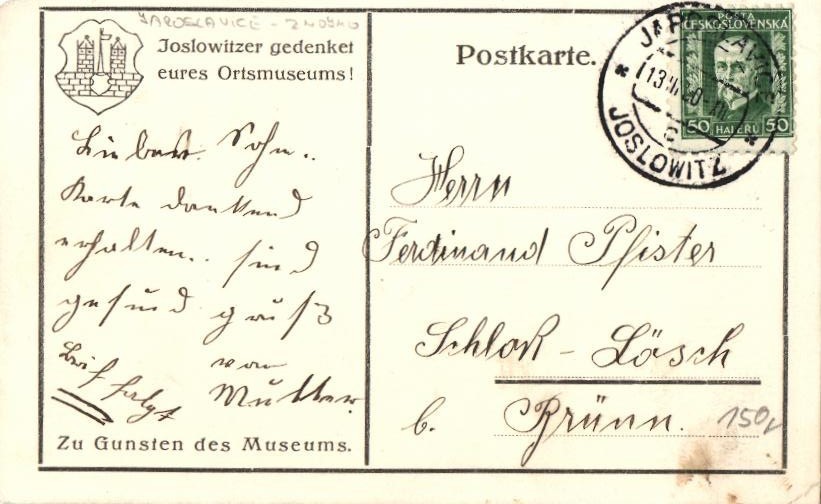 JAROSLAVICE - ZNOJMO
Joslowitzer gedenket
eures Ortsmuseums!
Postkarte.
POŠTA
ČESKOSLOVENSKÁ
50 HALÉŘŮ 50
JAROSLAVICE
13
c
JOSLOWITZ
Lieber Sohn..
Karte dankend
erhalten.. sind
gesund gruß
von
Mutter.
Brief folgt
Zu Gunsten des Museums.
Herrn
Ferdinand Pfister
Schloß - Lösch
b. Brünn.
150,